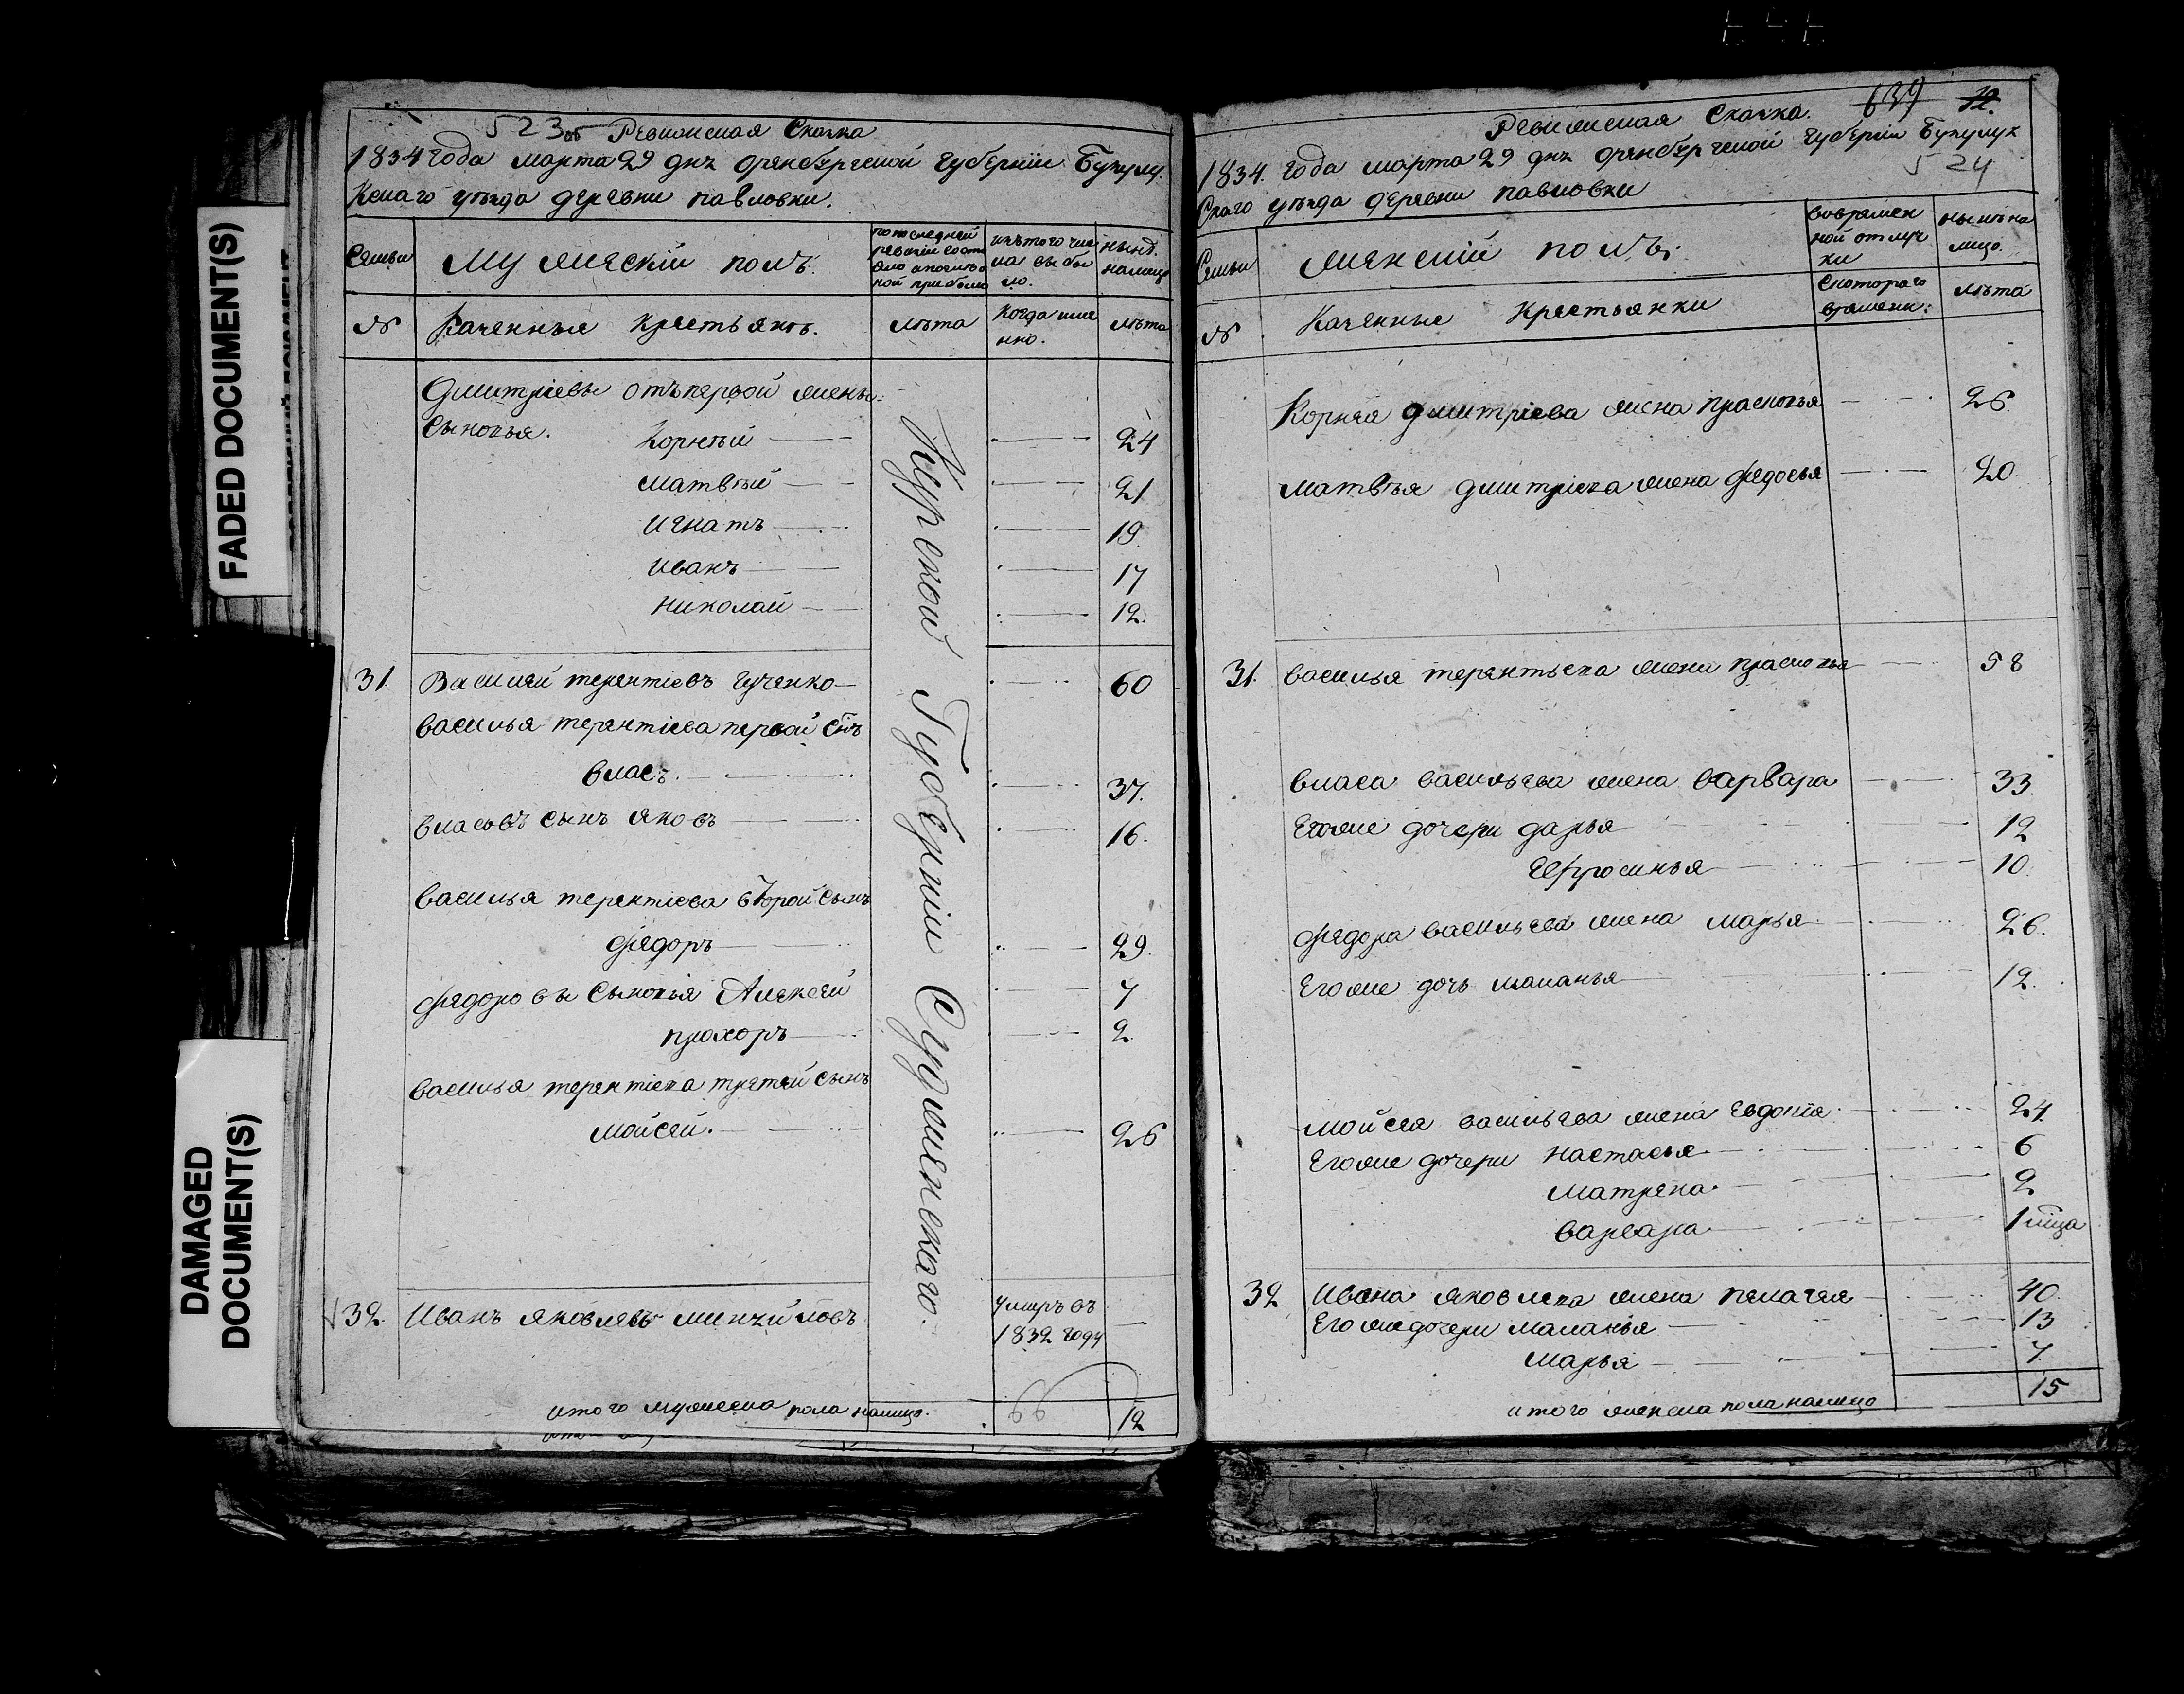 FADED DOCUMENT(S)
DAMAGED
DOCUMENT(S)
523 Ревизская Сказка
1834 года марта 29 дня оренбургской губернии Бугуру
сланского уѣзда деревни павловки.
Семьи
Мужескій полъ.
по последней
ревизіи состо
яло и после о
ной прибыло
изъ того чис
ла выбы
ло.
нынѣ
налицо
№
Казенныя крестьянъ.
лѣта
Когда име
нно.
лѣта
Дмитріевы отъ первой жены
Сыновья. Корнѣй 24
Матвѣй 21
Игнатъ 19
Иванъ 17
Николай 12.
31. Василей терентіевъ 60
василья терентіева первой сынъ
власъ. 37.
власовъ сынъ яковъ 16.
василья терентіева второй сынъ
федоръ 29.
федоровы Сыновья Алексей 7
прохоръ 2
василья терентіева третей сынъ
мойсей. 26
32. Иванъ яковлевъ умеръ въ
1832 году
Курской Губерніи Суджанскаго.
итого мужеска пола налицо. 66 12
639 32.
Ревизская Сказка.
1834. года марта 29 дня оренбургской губерніи Бугурус
524
уѣзда деревни павловки
Семьи
женскій полъ.
во времен
ной отлуч
ки
ныне на
лицо.
№
Казенные крестьянки
Скотораго
времени:
лѣта
Корнея дмитріева жена прасковья 26.
матвѣя дмитріева жена федосья 20.
31. василья терентьева жена прасковья 58
власа васильева жена варвара 33
Его же дочери дарья 12
Ефросинья 10.
федора васильева жена марья 26.
Его же дочь маланья 12.
мойсея васильева жена Евдокія 24
Его же дочери настасья 6
матрена 2
варвара 1
32 Ивана яковлева жена пелагея 40.
Его же дочери маланья 13
марья 7.
итого женска пола налицо 15